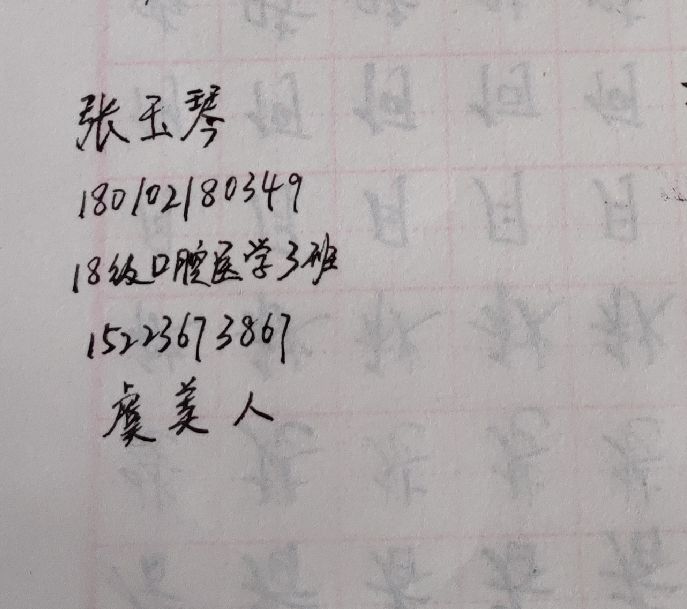 张玉琴
180102180349
18级口腔医学3班
15223673867
虞美人